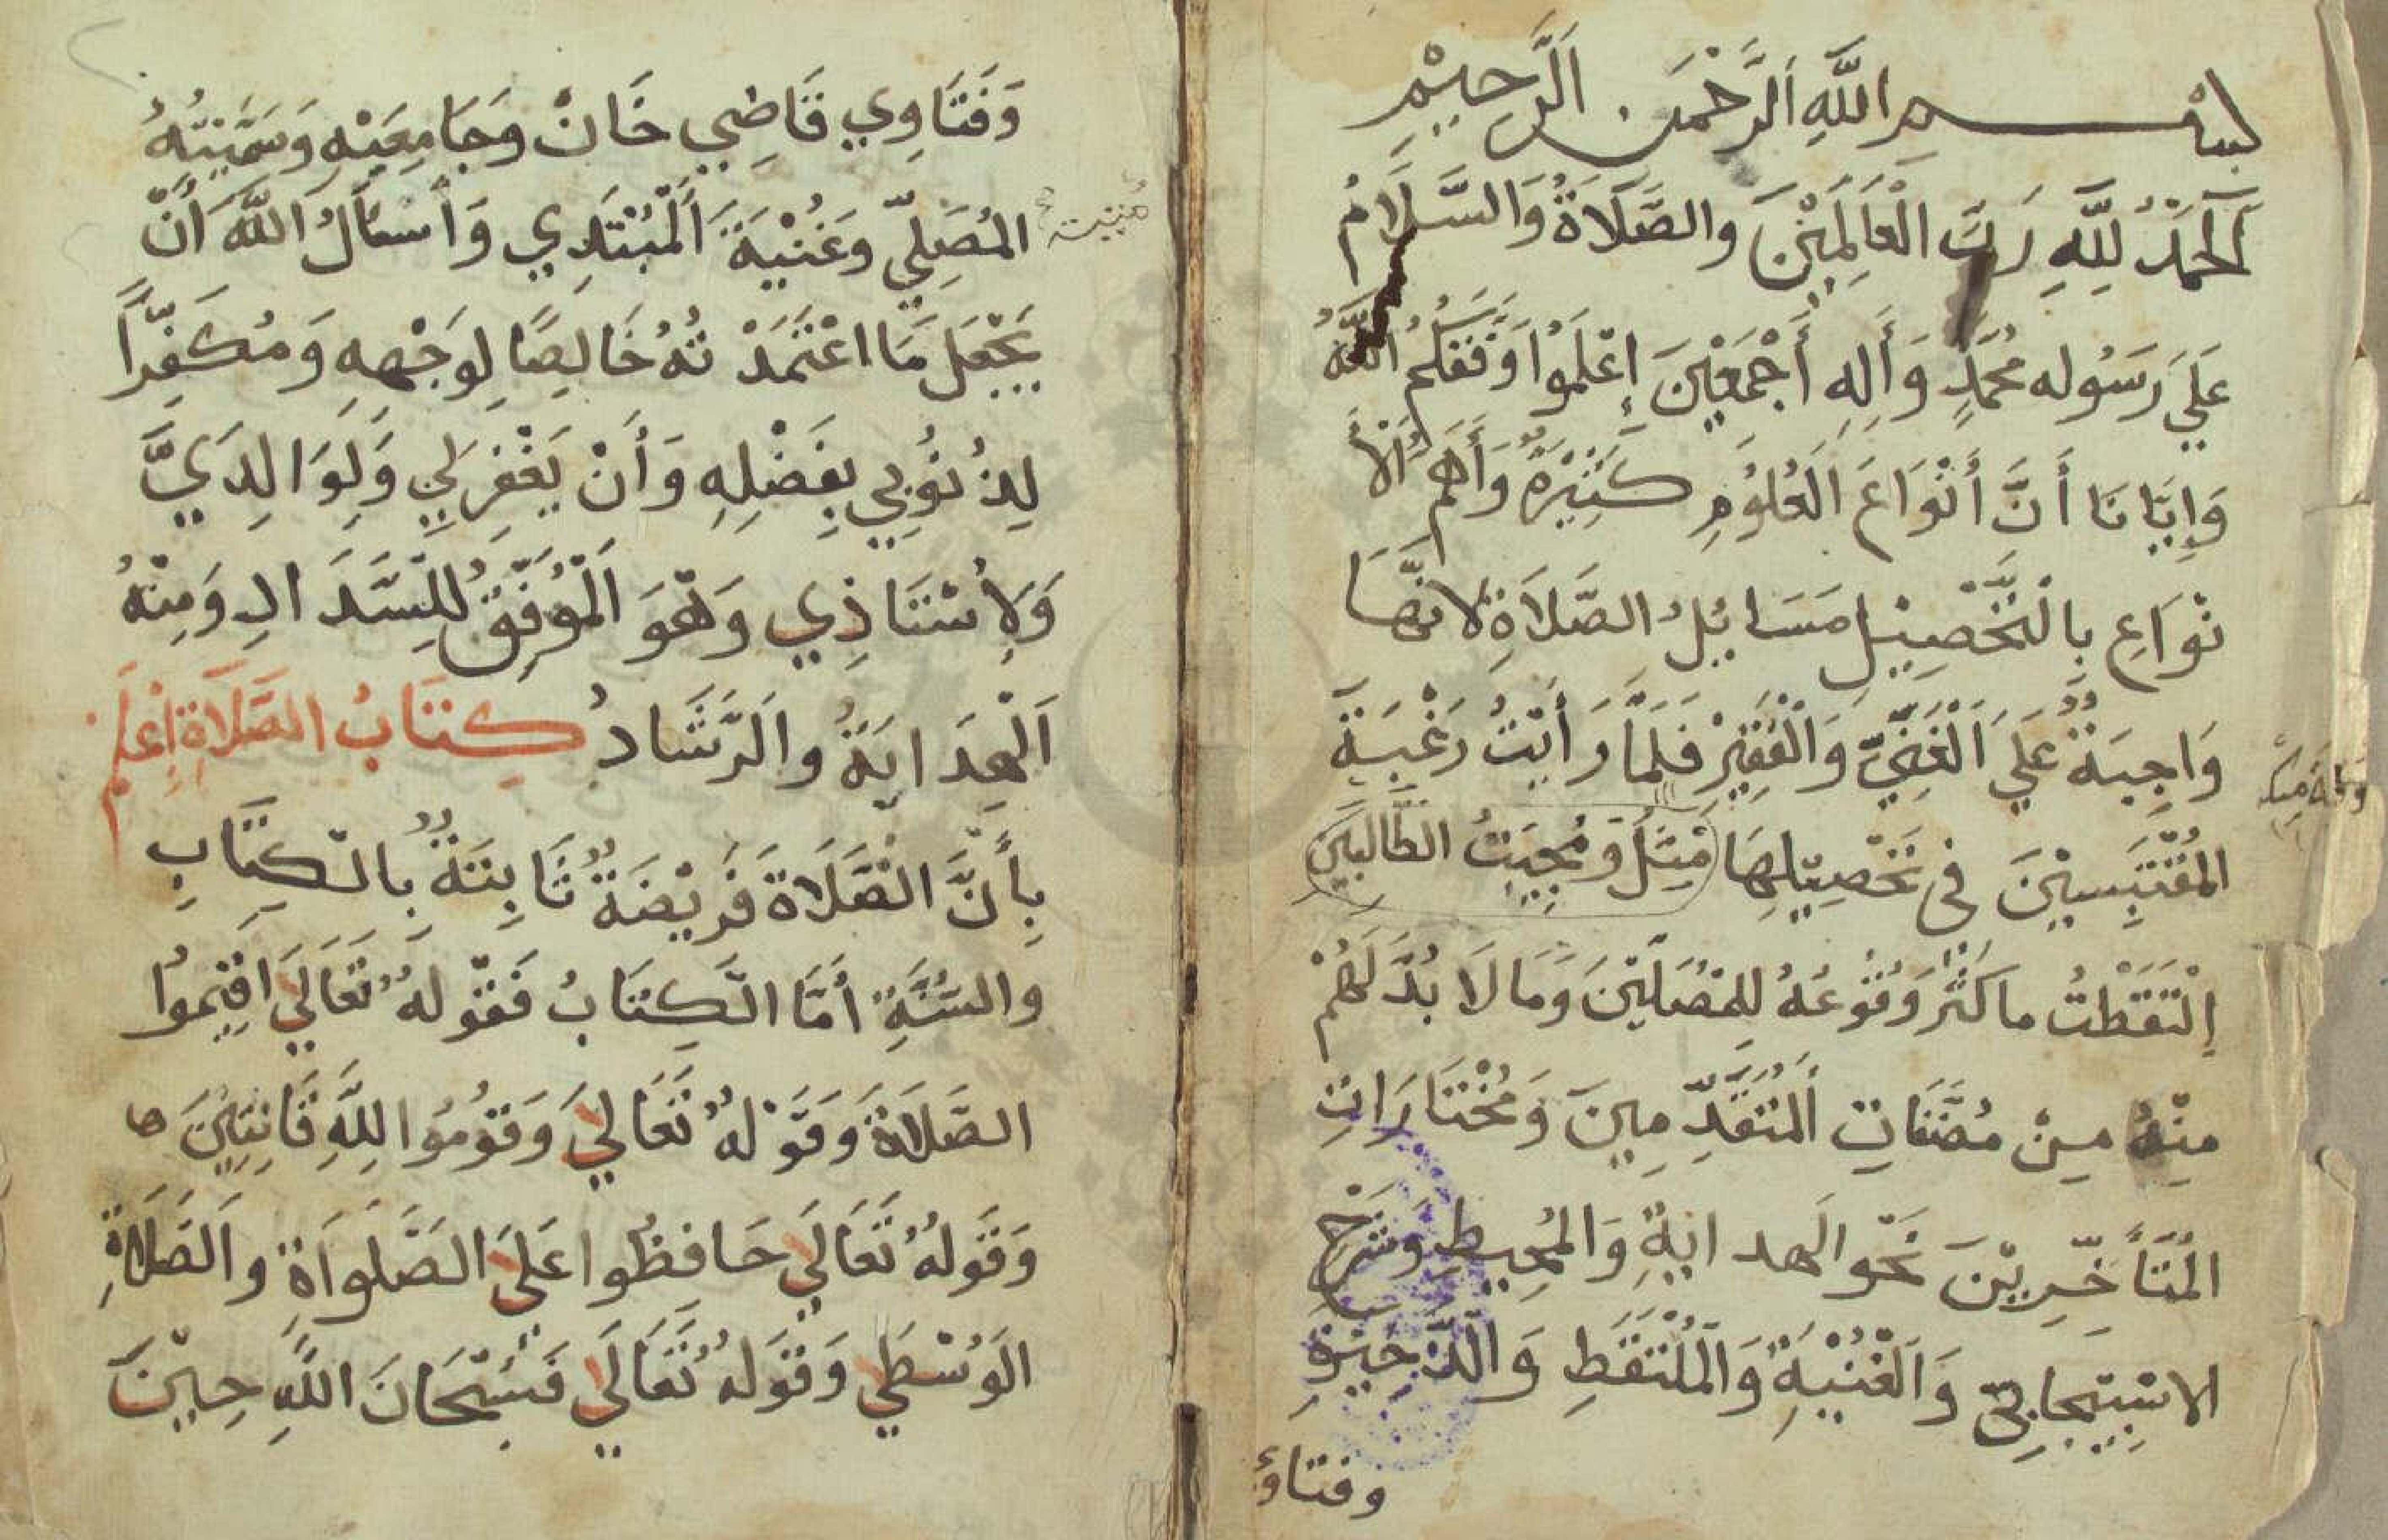 بسم الله الرحمن الرحيم
اَلْحَمْدُ لِلَّهِ رَبِّ الْعَالَمِيْنَ والصَّلَاةُ وَالسَّلَامُ
عَلَي رَسُوله مُحَمَّدٍ وَأَلِهِ أَجْمَعِيْنَ إِعْلَمُوْا وَفَّقَكُمُ اللَّهُ
وَإِيَّانَا أَنَّ أَنْوَاعَ الْعُلُوْمِ كَثِيْرَةٌ وَأَهَمُّ الْأَ
نْوَاعِ بِالتَّحْصِيْلِ مَسَائِلُ الصَّلَاةِ لانَّهَا
وَاجِبَةٌ عَلَي الْغَنِيِّ وَالْفَقِيْرْ فَلَمَّا رَأَيْتُ رَغْبَةَ
المُقْتَبِسِيْنَ فى تَحْصِيْلِهَا مَيَلَ وَمُحِبَّتُ الطَّالِبَيْنِ
اِلْتَقَطْتُ ما كَثُرَ وُقُوْعُهُ لِلمُصَلِّيْنَ وَمَا لَا بُدَّ لَهُمْ
مِنْهُ مِنْ مُصَنَّفَاتِ الْمُتَقَدِّمِينَ وَمُخْتَارَاتِ
الْمُتَأَخِّرِيْنَ نَحْوَ الْهِدايَةِ وَالمُحِيطِ وَشَرْحِ
الاسْبِيْجَابِيّ وَالْغُنْيَةِ وَالْمُلْتَقَطِ وَالذَّخِيْرَةِ
وفتاوٰ
وَفَتَاوِي قَاضِي خَانْ وَجَامِعَيْهِ وَسَمَّيْتُهُ
مُنيته
المُصَلِّيّ وَغُنْيَةَ الْمُبْتَدِي وَأَسْأَلُ اللَّهَ أَنْ
يَجْعَلَ مَا اعْتَمَدْ تُهُ خَالِصًا لِوَجْهِهِ وَمُكَفِّرًا
لِذُنُوْبِي بِفَضْلِهِ وَأَنْ يَغْفِرَ لِي وَلِوَالِدَيَّ
وَلِأُسْتَاذِي وَهُوَ الْمُوَفِّقُ لِلسَّدَادِ وَمِنْهُ
اَلْهِدَايَةُ وَالرَّشَادُ كِتَابُ الصَّلَاةِ اِعْلَمْ
بِأَنَّ الصَّلَاةَ فَرِيْضَةٌ ثَابِتَةٌ بِالكِتَابِ
والسُّنَّةِ أَمَّا الكِتَابُ فَقَوْلهُ تَعَالَي اَقِيْمُوا
الصَّلَاةَ وَقَوْلهُ تَعَالَي وَقُوْمُوا لِلَّهِ قَانِتِيْنَ
وَقَوْلهُ تَعَالَي حَافِظُوا عَلَي الصَّلَوَاةِ وَالصَّلَاةِ
الْوُسْطَي وَقَوْلهُ تَعَالَي فَسُبْحَانَ اللَّهِ حِيْنَ